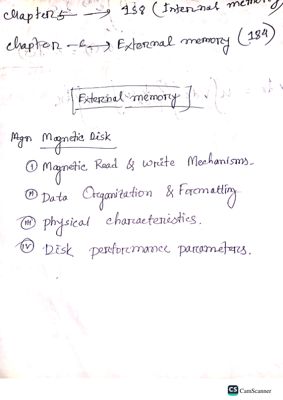 chapter 5 → 138 (Internal memory)
chapter - 6 → External memory (184)
External memory
Mgn Magnetic Disk
(I) Magnetic Read & Write Mechanisms.
(II) Data Organization & Formatting
(III) physical characteristics.
(IV) Disk performance parameters.
CS CamScanner